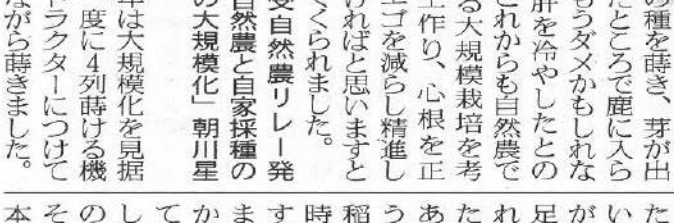 の種を蒔き、芽が出
たところで鹿に入ら
もうダメかもしれな
肝を冷やしたとの
これからも自然農で
る大規模栽培を考
土作り、心根を正
エゴを減らし精進し
ければと思いますと
くくられました。
受自然農リレー発
自然農と自家採種の
の大規模化」朝川星
年は大規模化を見据
一度に4列蒔ける機
トラクターにつけて
ながら蒔きました。
た
い
が
足
れ
た
あ
う
稲
時
す
ま
か
て
し
の
そ
本